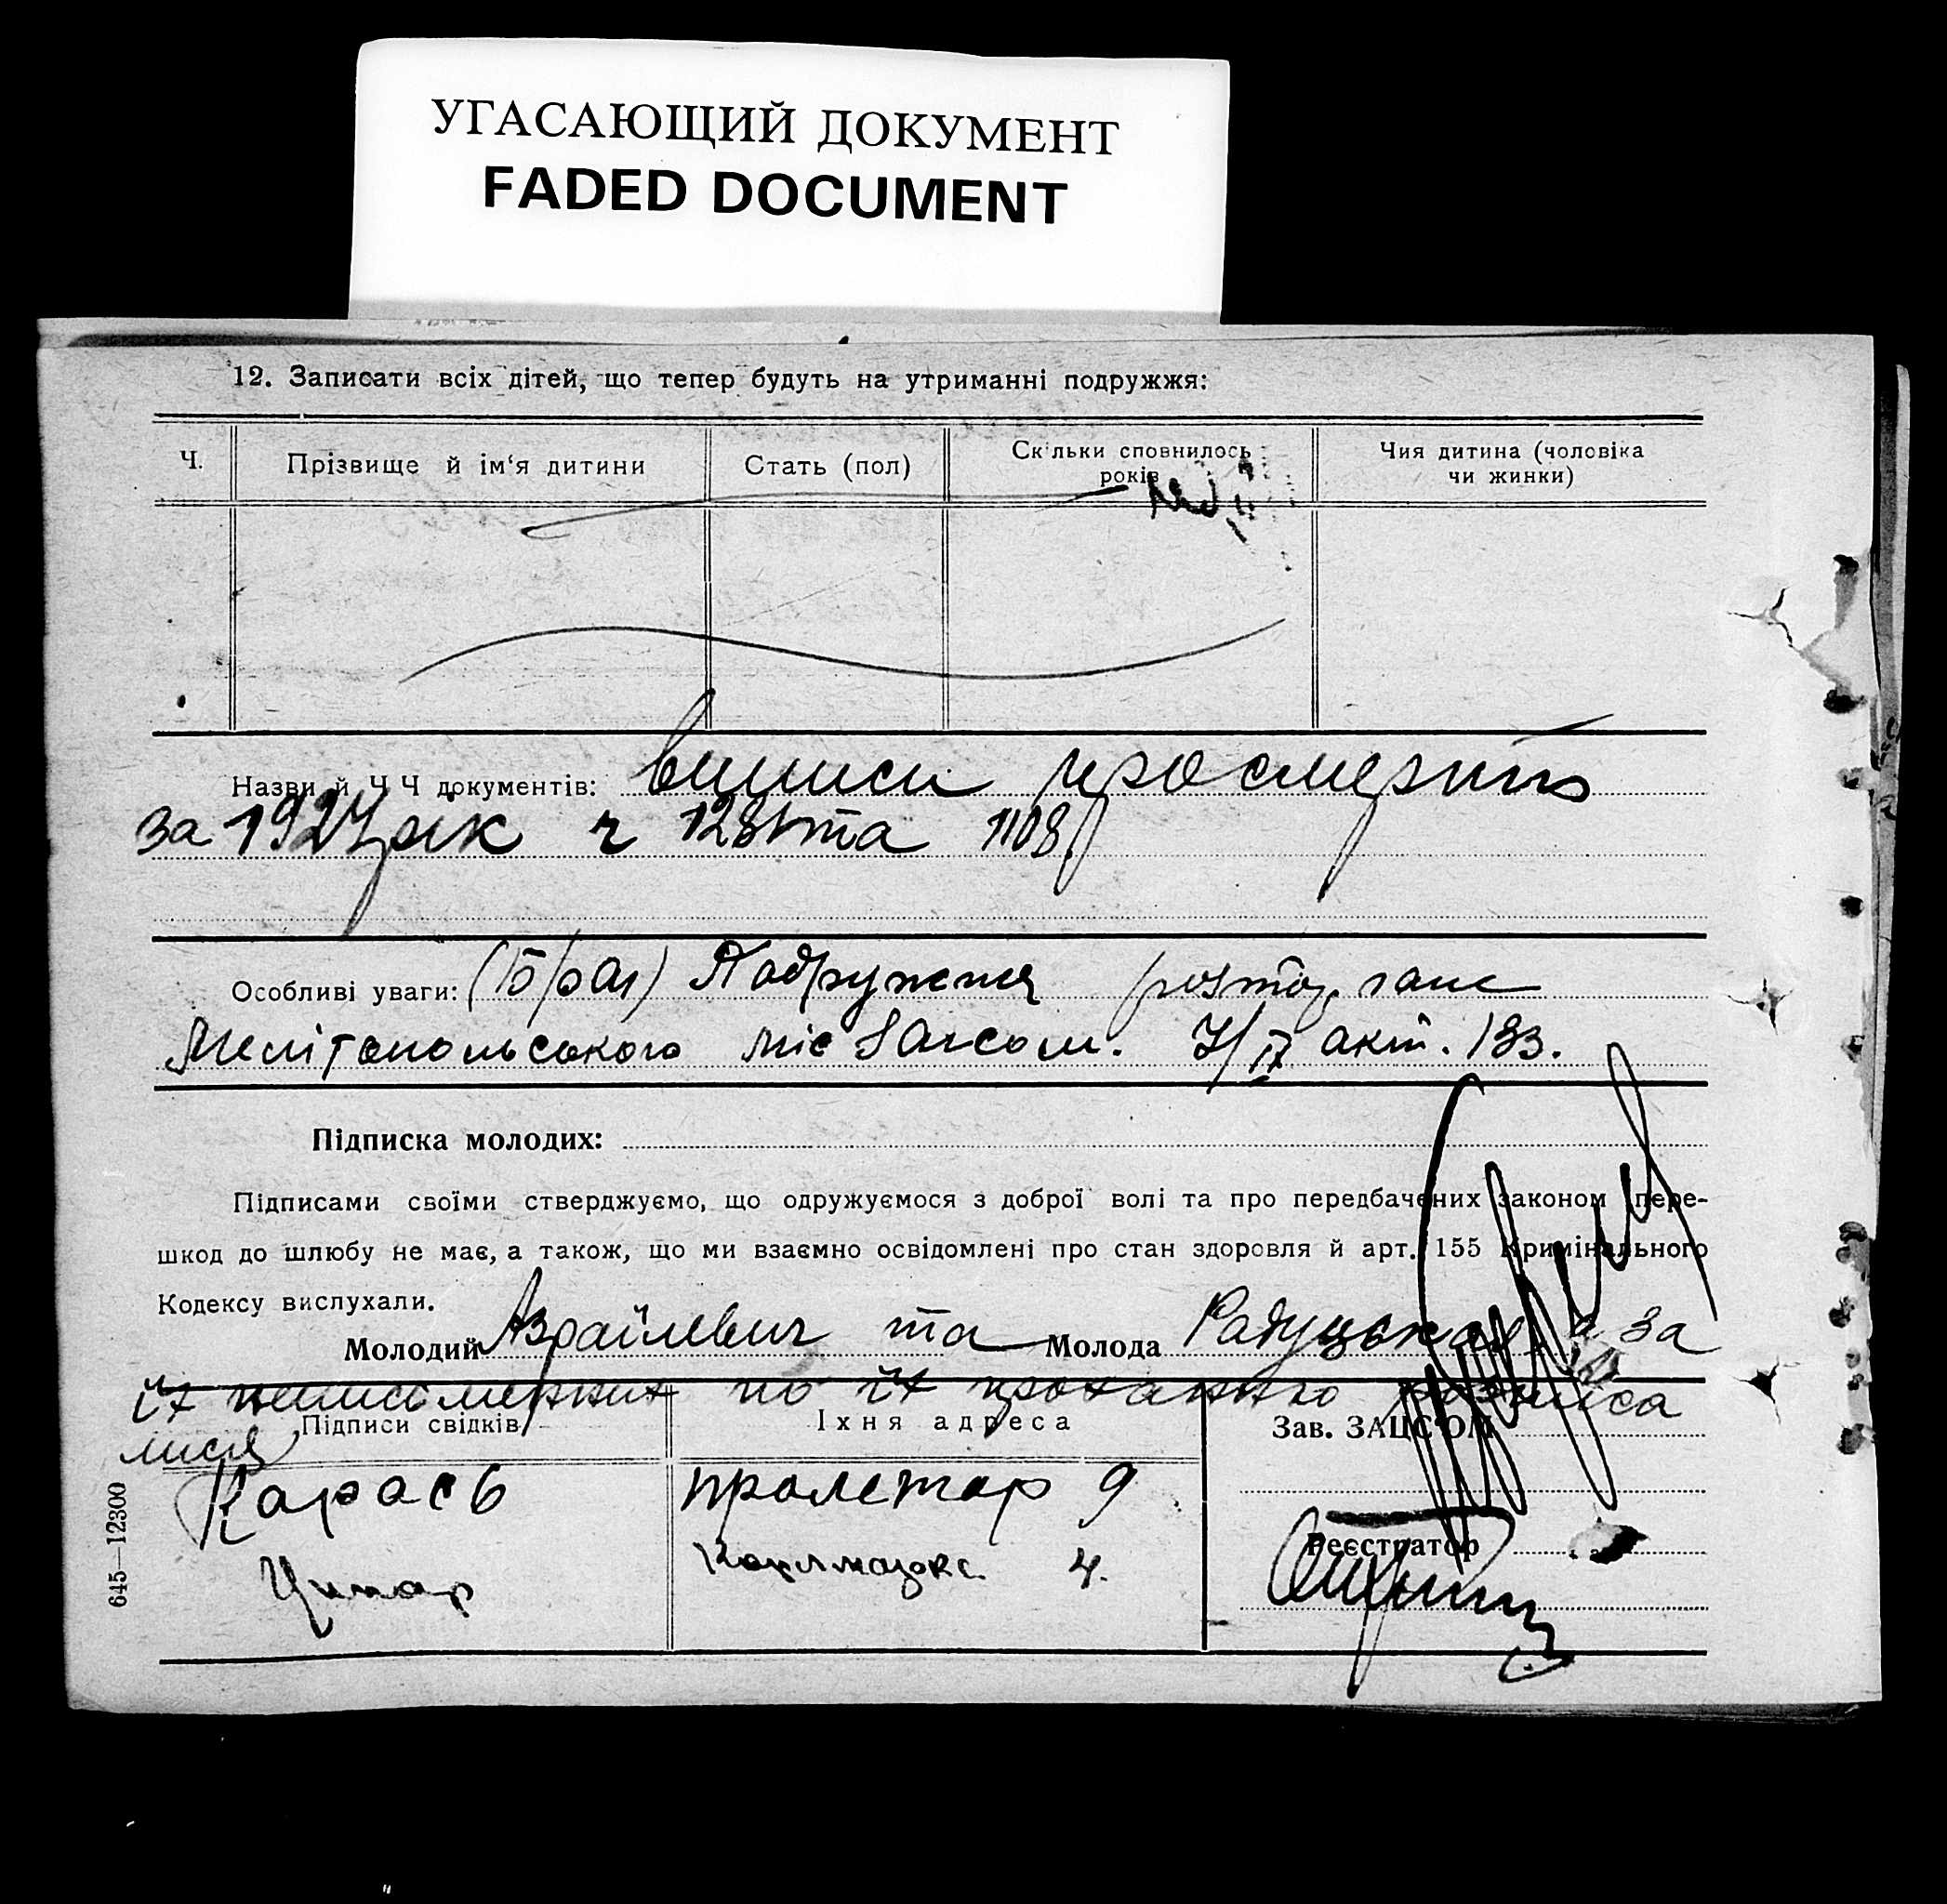 УГАСАЮЩИЙ ДОКУМЕНТ
FADED DOCUMENT
12. Записати всіх дітей, що тепер будуть на утриманні подружжя:
Ч.
Прізвище й ім‘я дитини
Стать (пол)
Скільки сповнилось
років
Чия дитина (чоловіка
чи жинки)
Назви й Ч Ч документів: виписи про смерть
за 1927 рік ч та 1108
Особливі уваги: Подружжя
Мелітопольського міс загсом. акт. 133.
Підписка молодих:
Підписами своїми стверджуємо, що одружуємося з доброї волі та про передбачених законом пере-
шкод до шлюбу не має, а також, що ми взаємно освідомлені про стан здоровля й арт. 155 Кримінального
Кодексу вислухали.
Молодий Азраїлевич та Молода Радуцькая а за
їх неписьменних по їх проханню розписа
лися
Підписи свідків
Їхня адреса
Зав. ЗАЦС'ОМ
Карась
пролетар 9
Карлмаркс 4.
Реєстратор
645—12300